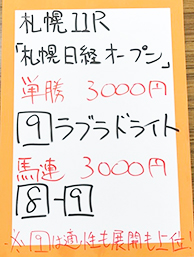 札幌11R
「札幌日経オープン」
単勝 3000円
9 ラブラドライト
馬連 3000円
8-9
※9は適性も展開も上位!